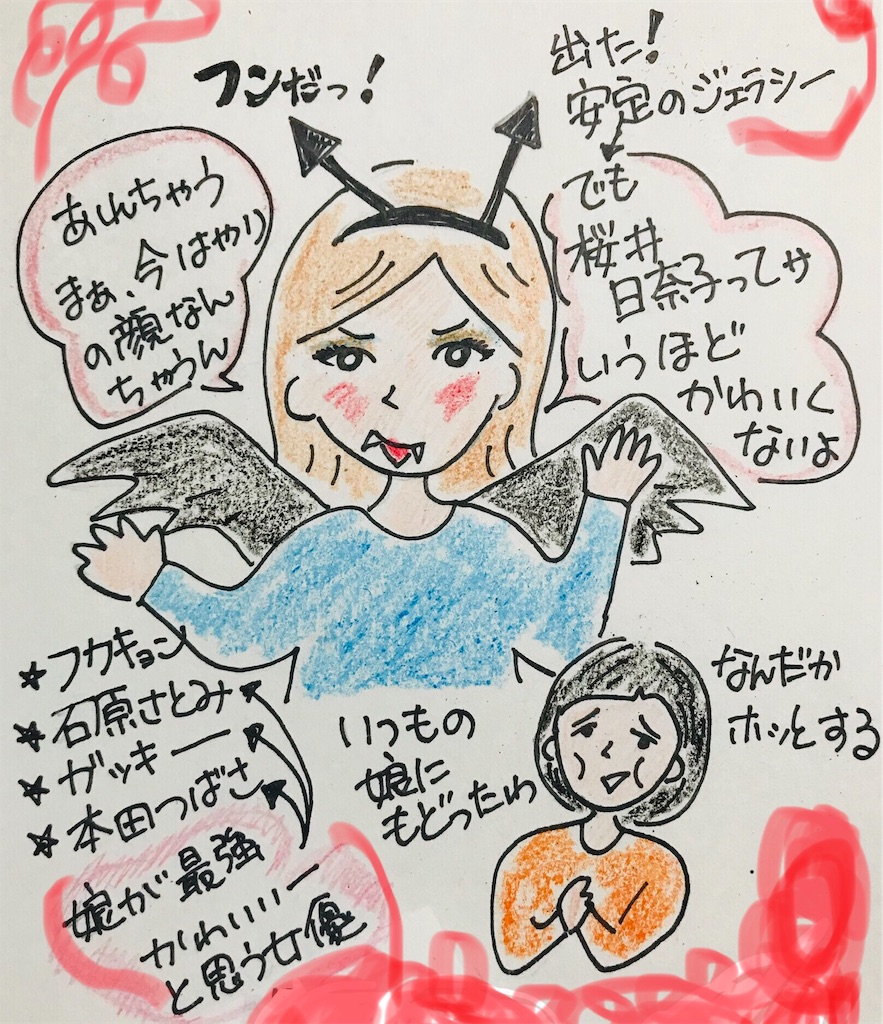 フンだっ!
出た!
安定のジェラシー
あんちゃう
まぁ、今はやり
の顔なん
ちゃうん
でも
桜井
日奈子ってサ
いうほど
かわいく
ないよ
☆フカキョン
☆石原さとみ
☆ガッキー
☆本田つばさ
娘が最強
かわいいー
と思う女優
いつもの
娘に
もどったわ
なんだか
ホッとする